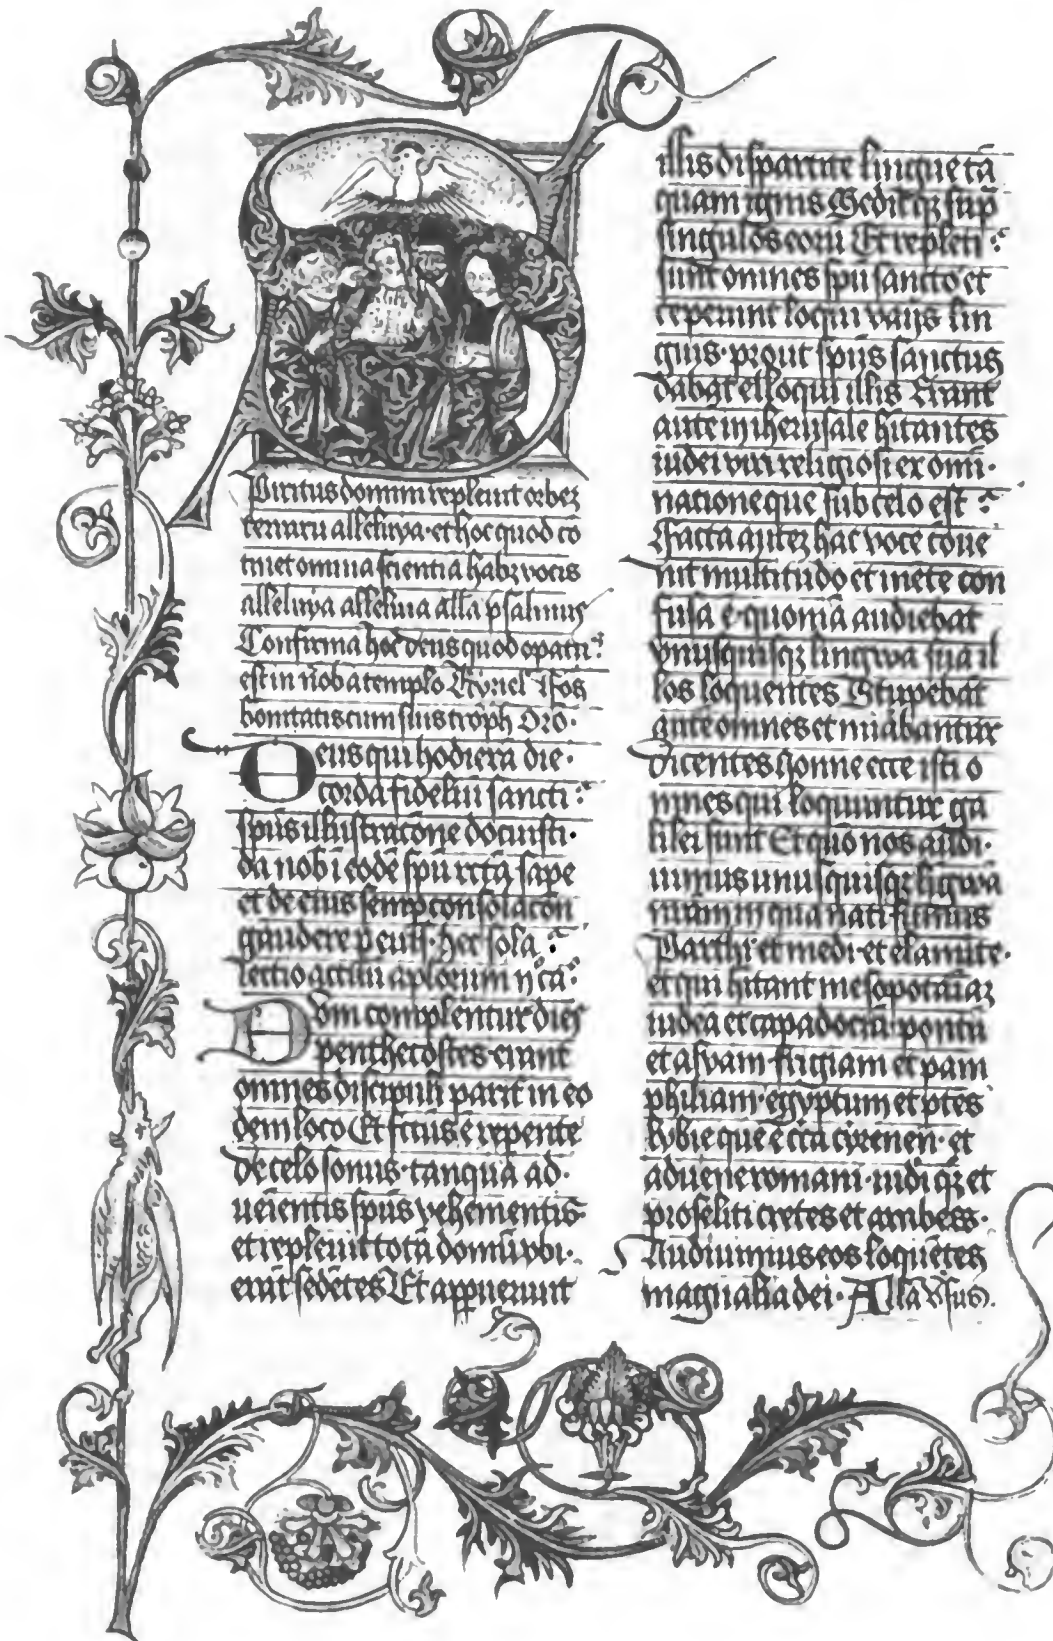 Spiritus domini repleuit orbez
terraru alleluya · et hoc quod co
tinet omnia scientia habz vocis
alleluya alleluia alla psalmus
Confirma hoc deus quod opatu
est in nob a templo kyriel
bonitatis cum suis troph Oro ·
Deus qui hodierna die ·
corda fideliu sancti
sps illustracone docuisti ·
da nob i eode spu recta sape
et de eius semp consolacon
gaudere p eunds · hec sola
Lectio actuu aplorum
Dum complentur dies
penthecostes erant
omnes discipuli parit in eo
dem loco Et fctus e repente
de celo sonus · tanqua ad ·
uenientis sps vehementis
et repleuit tota domu vbi ·
erat sedetes Et appueruut
illis dispartite lingue ta
quam ignis Seditqz sup
singulos eoru Et repleti
sunt omnes spu sancto et
ceperunt loqui varijs lin
guis · prout sps sanctus
dabat eloqui illis Erant
aute in iherusale hitantes
iudei viri religiosi ex omi ·
natione que sub celo est
Facta autez hac voce coue
nit multitudo et mete con
fusa e · quonia audiebat
vnusquisqz lingwa sua il
los loquentes Stupebat
aute omnes et mirabantur
dicentes Nonne ecce isti o
mnes qui loquuntur ga
lilei sunt Et quo nos audi ·
uimus unusquisqz ligwa
nram in qua nati sumus
Parthi et medi et elamite ·
et qui hitant mesopotamiaz
iudea et capadocia · pontu
et asyam · frigiam et pam
philiam · egyptum et ptes
lybie que e cca cyrenen · et
aduene romani · iudi qz et
proseliti cretes et arabess ·
Audiuimus eos loquetes
magnalia dei · Alla vsus